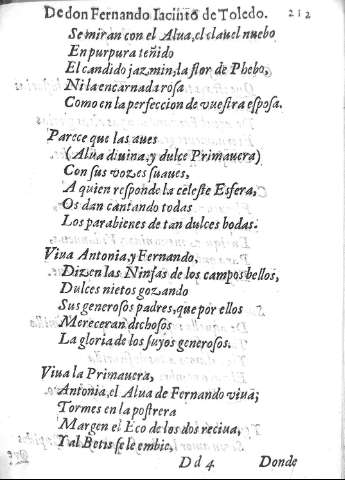 De don Fernando Iacinto de Toledo. 212
Se miran con el Alua, el clauel nuebo
En purpura teñido
El candido jazmin, la flor de Phebo,
Ni la encarnada rosa
Como en la perfeccion de vuestra esposa.
Parece que las aues
(Alua diuina, y dulce Primauera)
Con sus vozes suaues,
A quien responde la celeste Esfera,
Os dan cantando todas
Los parabienes de tan dulces bodas.
Viua Antonia, y Fernando,
Dizen las Ninfas de los campos bellos,
Dulces nietos gozando
Sus generosos padres, que por ellos
Mereceran dichosos
La gloria de los suyos generosos.
Viua la Primauera,
Antonia, el Alua de Fernando viua;
Tormes en la postrera
Margen el Eco de los dos reciua,
Y al Betis se le embie,
Dd 4 Donde